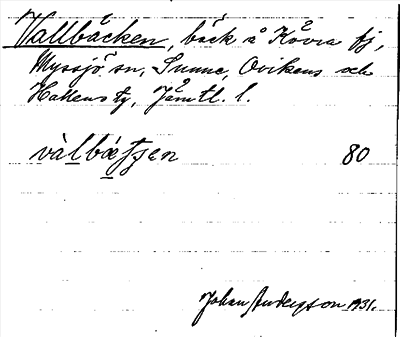 Vallbäcken, bäck å Kövra fj,
Myssjö sn, Sunne, Ovikens och
Hallens tg, Jämtl. l.
vàlbætʃen 80
Johan Anderson 1931.